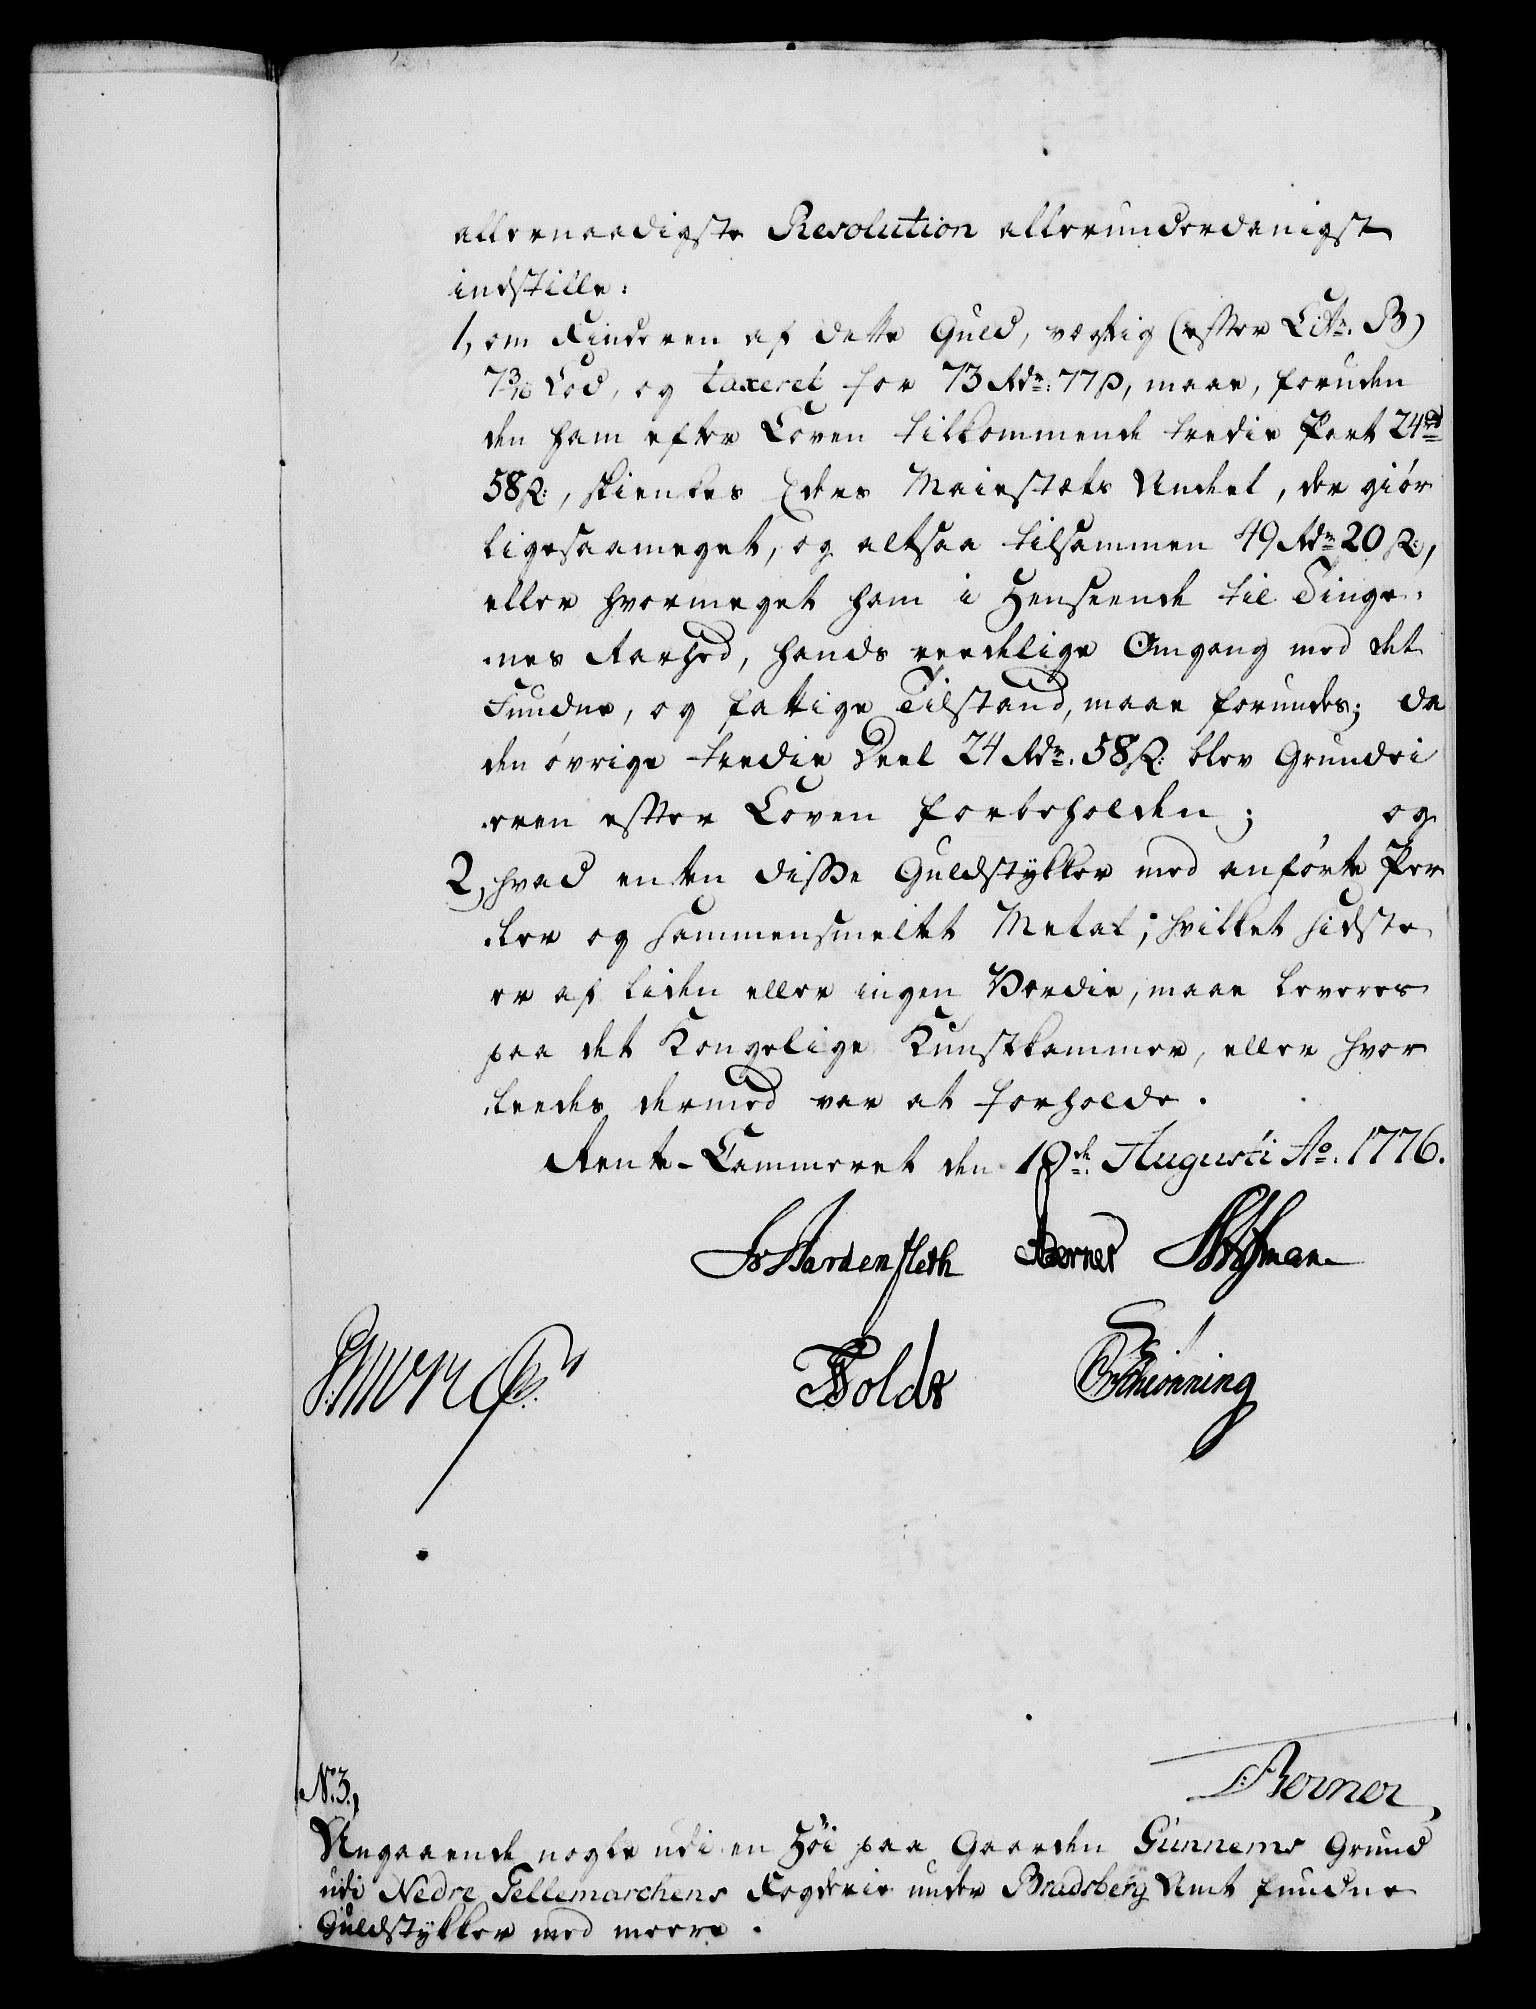 allernaadigste Resolution allerunderdanigst
indstille:
1, om Finderen af dette Guld, vægtig (efter Litr. B)
7 3/16 Lod, og taxeret for 73 Rdr. 77 β, maae, foruden
den ham efter Loven tilkommende tredie Part 24 rd
58 β:, skienkes Eders Maiestæts Andeel, der giør
ligesaameget, og altsaa tilsammen 49 Rdr. 20 β:,
eller hvormeget ham i Henseende til Tinge-
-nes Rarhed, hands reedelige Omgang med det
Fundne, og fattige Tilstand, maae forundes; da
den øvrige tredie Deel 24 Rdr. 58 β: blev Grundei
-eren efter Loven forbeholden; og
2, hvad enten disse Guldstykker med anførte Per
-ler og sammensmeltet Metal; hvilket sidste
er af liden eller ingen Værdie, maae leveres
paa det Kongelige Kunstkammer, eller hvor
-leedes dermed var at forholde.
Rente-Cammeret den Augusti Ao. 1776.
Hardenfleth Berner Hofman
Holdt Schiønning
Berner
No. 3.,
Angaaende nogle udi en Høi paa Gaarden Gunnems Grund
udi Nedre Tellemarchens Fogderie under Bradsberg Amt fundne
Guldstykker med meere.